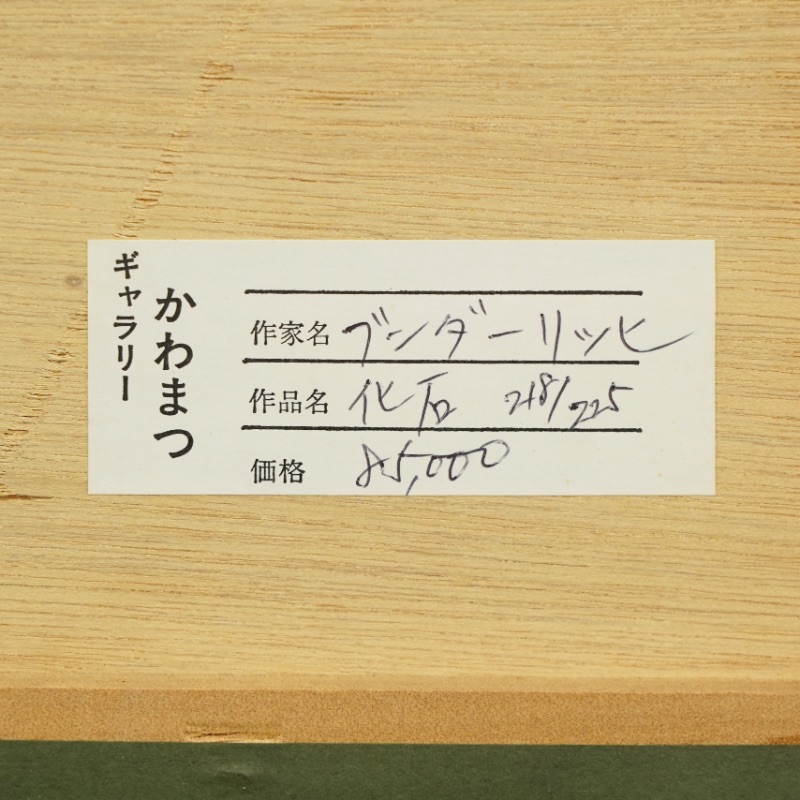 ギャラリー
かわまつ
作家名 ブンダーリッヒ
作品名 化石 218/225
価格 85,000